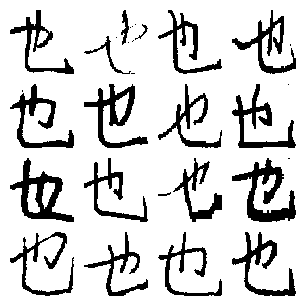 也也也也
也也也也
也也也也
也也也也